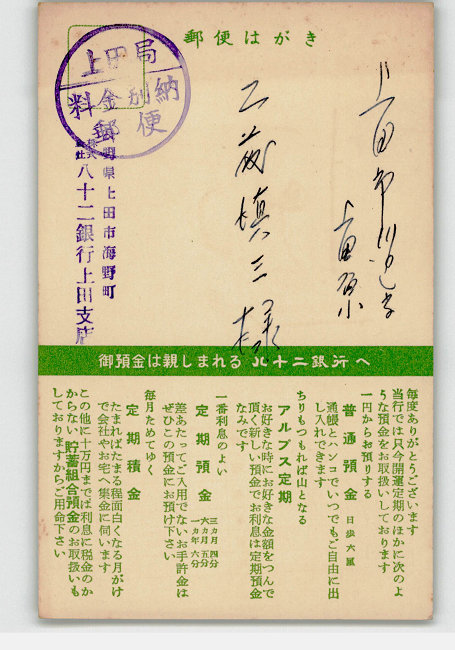 郵便はがき
上田局
料金別納
郵便
上田市
上田原
三様
長野県上田市海野町
株式会社八十二銀行上田支店
御預金は親しまれる 八十二銀行へ
毎度ありがとうございます
当行では只今開運定期のほかに次のよ
うな預金をお取扱いしております
一円からお預りする
普通預金 日歩六厘
通帳とハンコでいつでもご自由に出
し入れできます
ちりもつもれば山となる
アルプス定期
お好きな時にお好きな金額をつんで
頂く新しい預金でお利息は定期預金
なみです
一番利息のよい
定期預金
三カ月四分
六カ月五分
一カ年六分
差あたってご入用でないお手許金は
ぜひこの預金にお預け下さい
毎月ためてゆく
定期積金
たまればたまる程面白くなる月がけ
で会社やお宅へ集金に伺います
この他に十万円までは利息に税金のか
からない貯蓄組合預金のお取扱いも
しておりますからご用命下さい